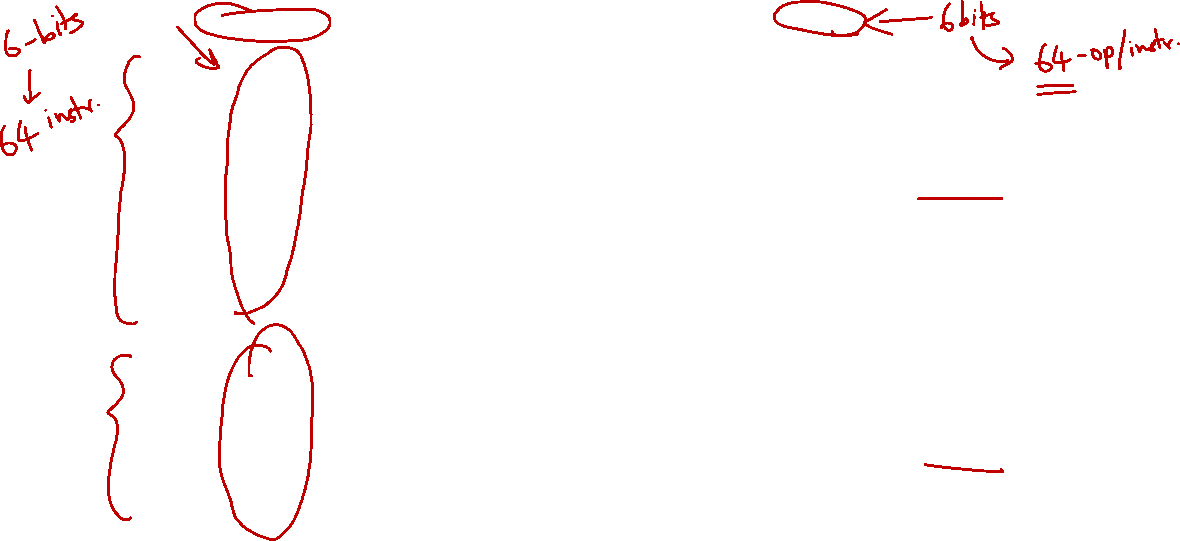 6-bits
64 instr.
6bits
64-op/instr.